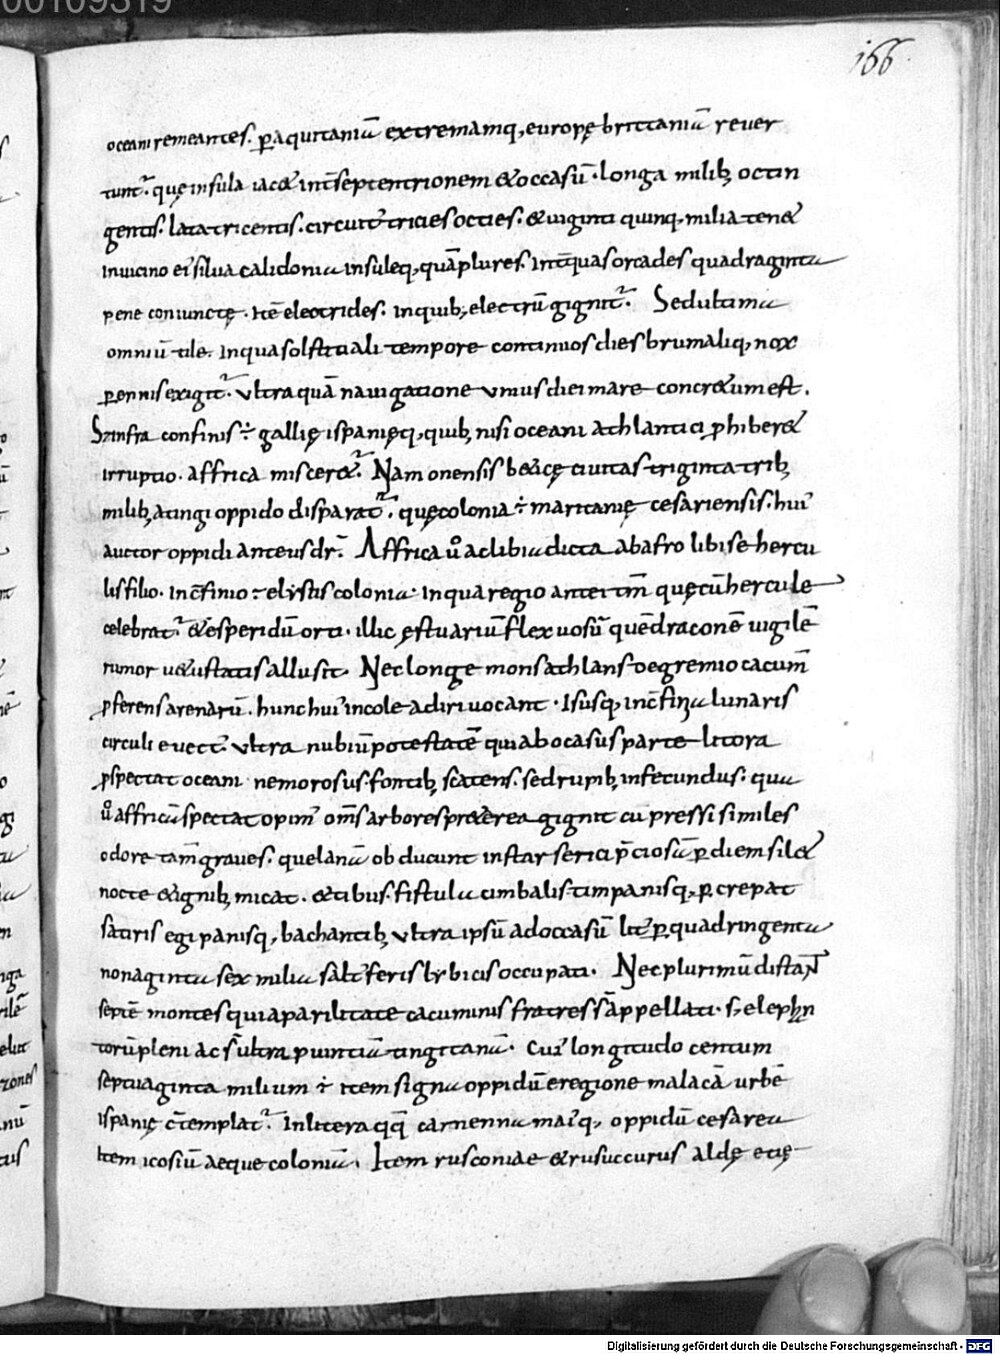 00109319
166
oceani remeantes. ꝑ aquitaniā extremāmq; europę brittaniā reuer
tunt᷑. quę insula iac& int̄ septentrionem & occasū. longa milib; octin
gentis. lata tricentis. circuit᷑ tricies octies. & uiginti quinq; milia ten&
Inuicino ei᷒ silua calidonia insuleq; quāplures. Int̄ quas orcades quadraginta
pene coniunctę. Itē eleotrides. in quib; electrū gignit᷑. Sed ultima
omniū tile. In qua solstitiali tempore continuos dies brumaliq; nox
ꝑennis exigit᷑. vltra quā nauigatione vnius diei mare concr&um est.
Sz infra confinis ÷ gallię ispanięq; quib; nisi oceani athlantici ꝓhiber&
irruptio. affrica miscer&᷑. Nam onensis beticę ciuitas triginta trib;
milib; a tingi oppido disparat᷑. quę colonia ÷ maritanię cesariensis. hui᷒
auctor oppidi anteus dr̄. Affrica u᷒ a clibia dicta ab afro libise hercu
lis filio. In c̄finio ÷ elysus colonia. in qua regio antei tm̄ quę cū hercule
celebrat᷑. & esperidū orti. illic ęstuariū flexuosū quē draconē uigilē
rumor u&ustatis allusit. Nec longe mons athlans de gremio cacum̄
ꝓferens arenarū. hunc hui᷒ incole adiri uocant. Isusq; in c̄finia lunaris
circuli euect᷒. vltra nubiū potestatē qui ab ocasus parte litora
ꝓspectat oceani nemorosus. fontib; scatens. sed rupib; infecundus. qua
u᷒ affricā spectat opim᷒ om̄s arbores pr&erea gignit cupressi similes
odore tam̄ graues. que lanā obducunt instar serici p̄ciosū ꝑ diem sil&
nocte & ignib; micat. & tibiis. fistula cimbalis timpanisq; ꝑcrepat
satiris egipanisq; bachantib; vltra ipsū ad occasū lit᷑ ꝑ quadringenta
nonaginta sex milia salt᷒ feris lybicis occupati. Nec plurimū distant
septē montes qui a parilitate cacuminis fratres s̄ appellati. s; elephn
torū pleni ac s̄ ultra puintiā tingitanā. Cui᷒ longitudo centum
septuaginta milium ÷ item signa oppidū e regione malacā urbē
ispanię c̄templat᷑. In litera qq̄ carnenna mai᷒q; oppidū cesarea
Item icosiū aeque colonia. Item rusconiae & rusuccurus aldę etię
Digitalisierung gefördert durch die Deutsche Forschungsgemeinschaft - DFG